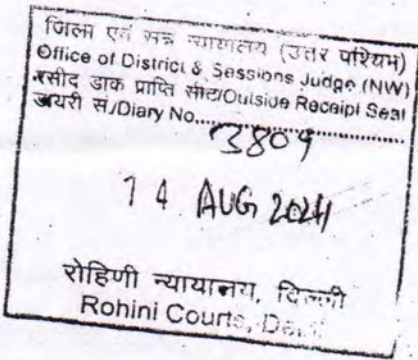 जिला एवं सत्र न्यायालय (उत्तर पश्चिम)
Office of District & Sessions Judge (NW)
रसीद डाक प्राप्ति सीट/Outside Receipt Seal
डायरी सं./Diary No..............................
3809
14 AUG 2024
रोहिणी न्यायालय, दिल्ली
Rohini Courts,